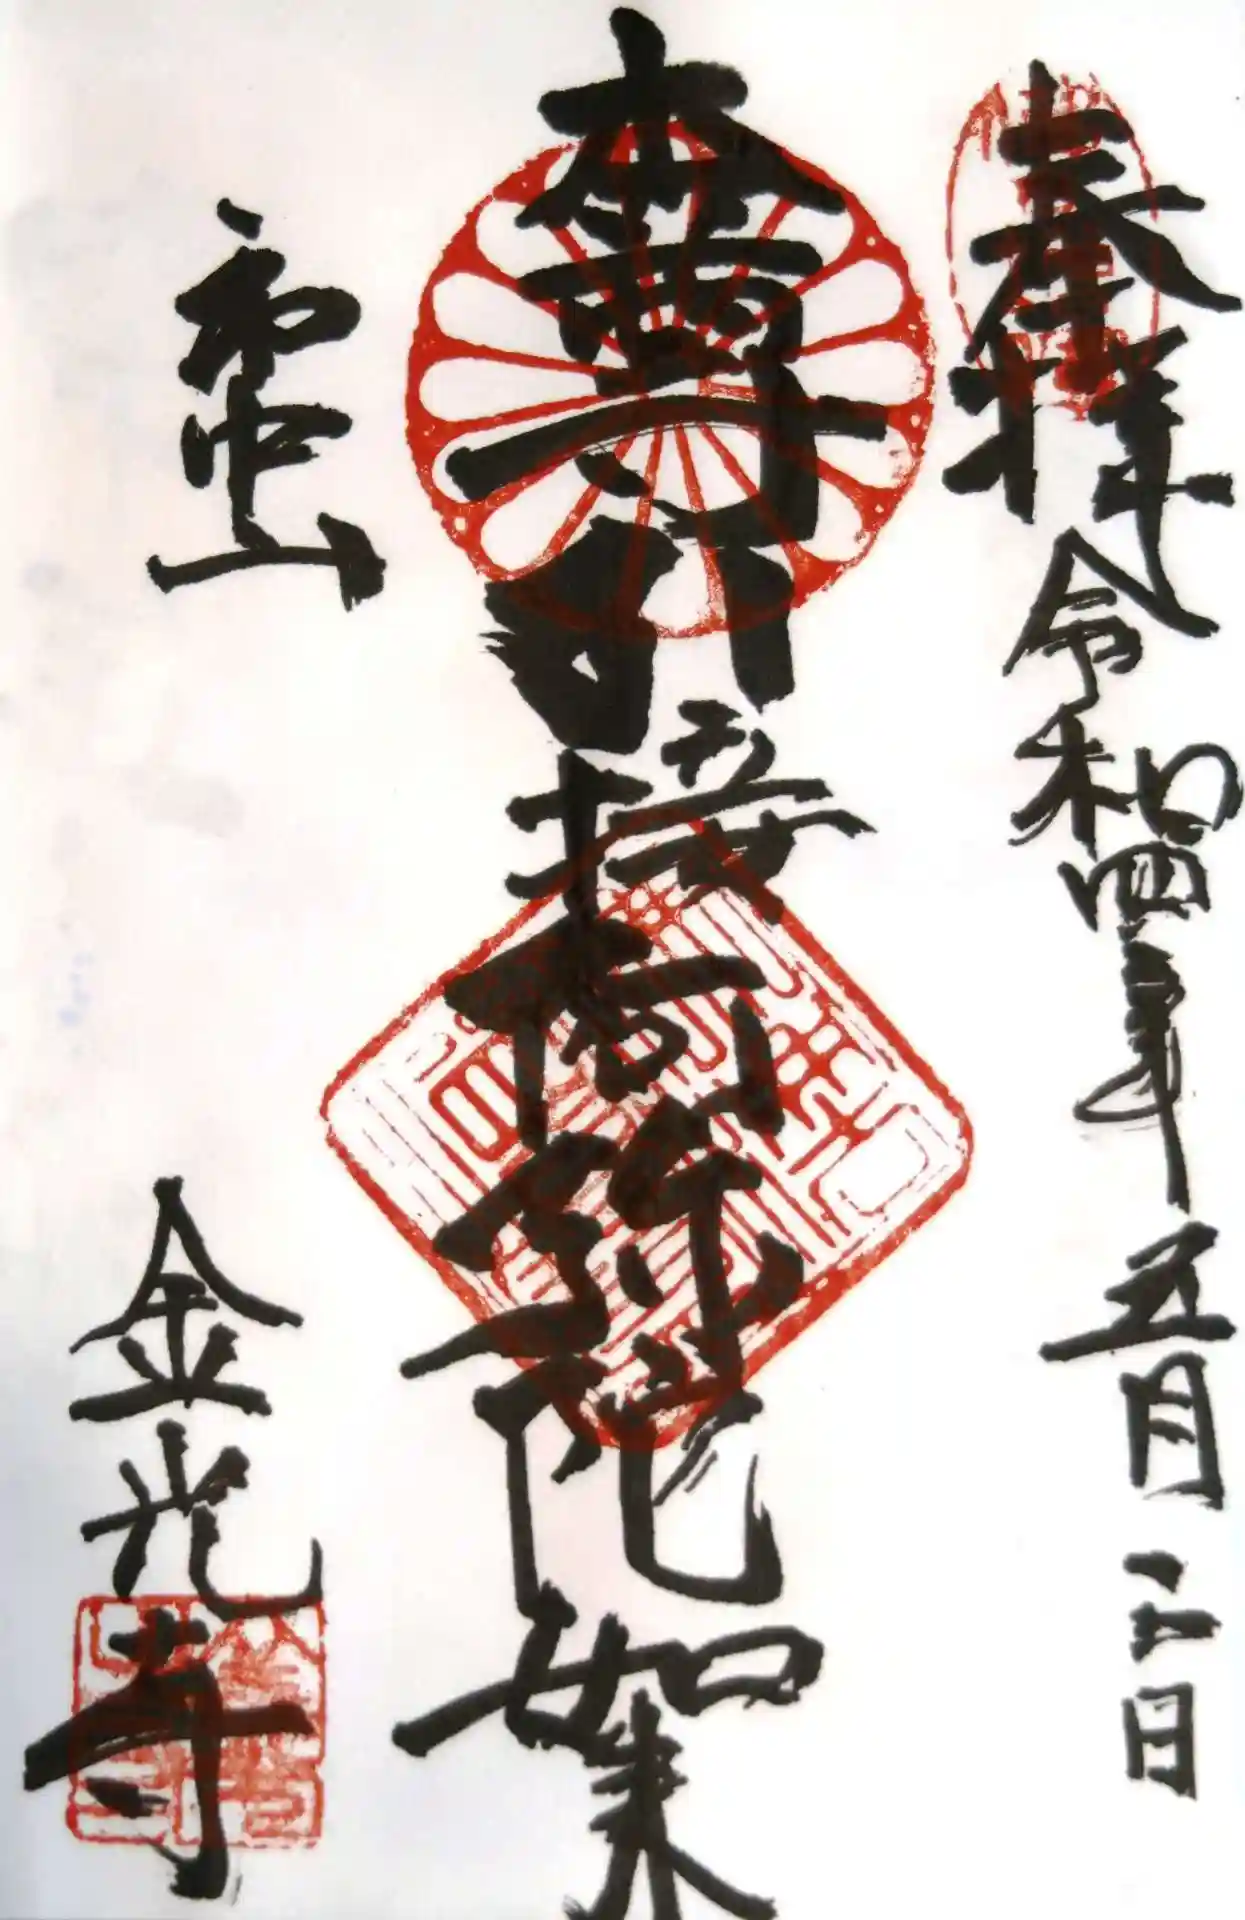 奉拝 令和四年五月二日
本尊 引接阿弥陀如来
市中山
金光寺